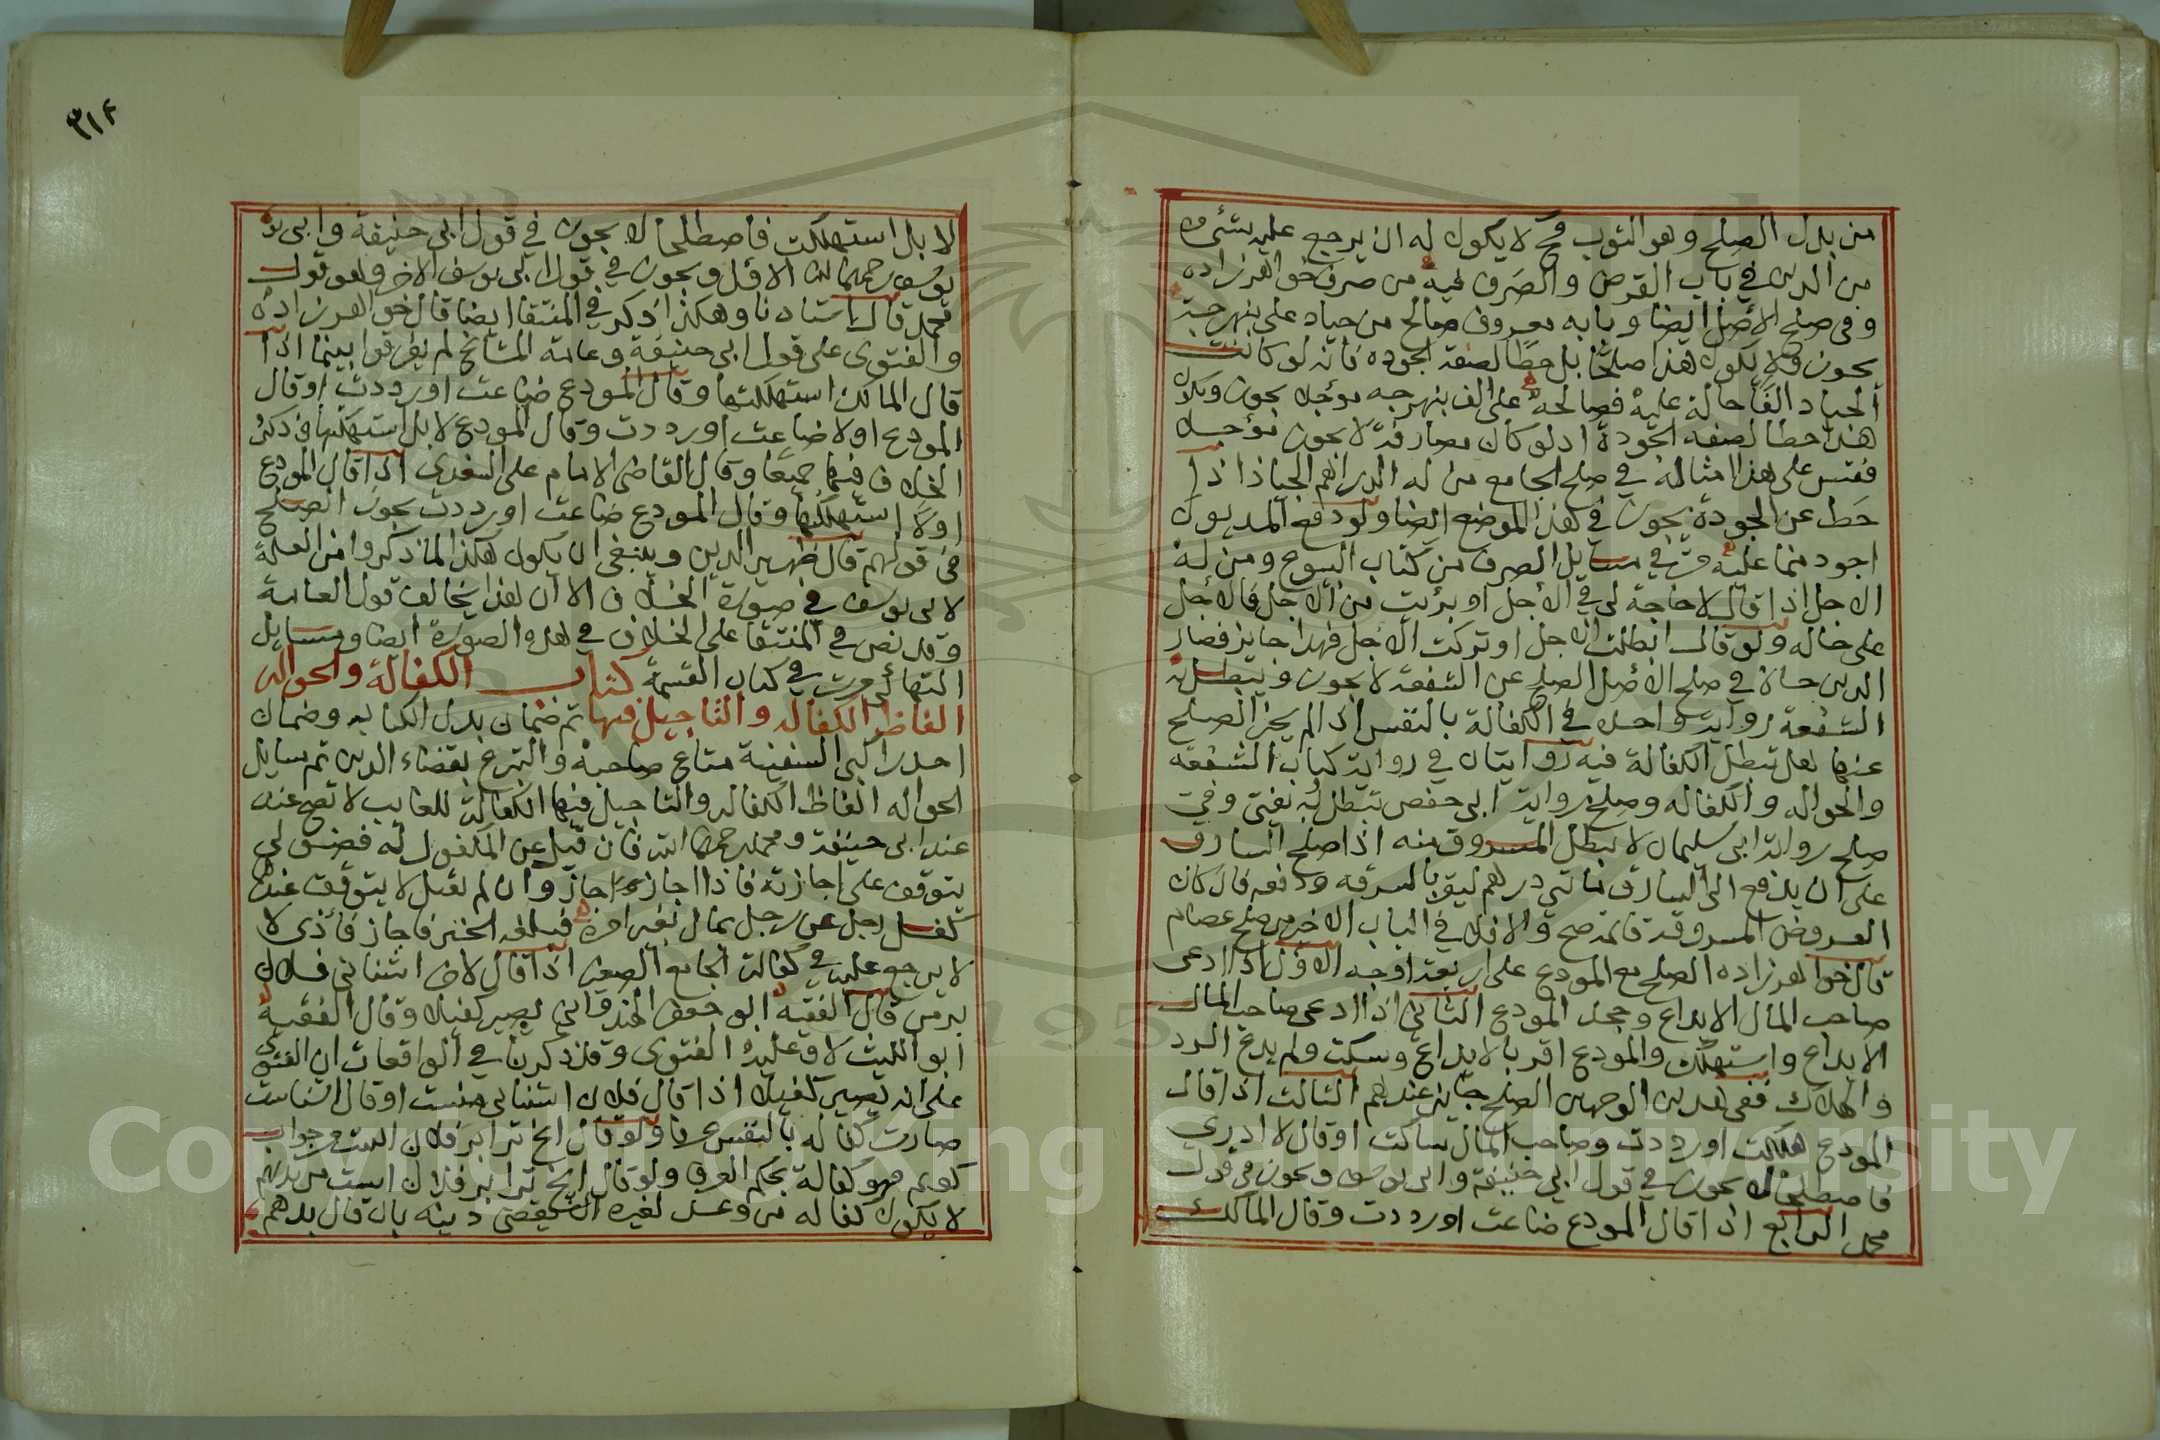 من بدل الصلح وهو الثوب فح لا يكون له ان يرجع عليه بشئ
من الدين في باب القرض والصرف فيه من صرف خواهرزاده
وفى صلح الاصل ايضا وبابه معروف صالح من جياد على بنهرجة
يجوز ولا يكون هذا صلحا بل حطا لصفة الجوده فانه لو كانت
الجياد الفا حالة عليه فصالحه على الف بنهرجه مؤجله يجوز ويكون
هذا حطا لصفة الجودة اذ لو كان مصارفة لا يجوز مؤجله
فقس على هذا امثاله في صلح الجامع من له الدراهم الجياد اذا
حط عن الجودة يجوز في هذا الموضع ايضا ولو دفع المديون
اجود مما عليه في مسايل الصرف من كتاب البيوع ومن له
الاجل اذا قال لا حاجة لى في الاجل او برئت من الاجل فالاجل
على حاله ولو قال ابطلت الاجل او تركت الاجل فهذا جايز فصار
الدين حالا في صلح الاصل الصلح عن الشفعة لا يجوز ويبطل به
الشفعة رواية واحدة في الكفالة بالنفس اذا لم يجز الصلح
عنها هل تبطل الكفالة فيه روايتان في رواية كتاب الشفعة
والحواله والكفاله وصلح رواية ابى حفص تبطل به يفتى وفي
صلح رواية ابى سليمان لا يبطل المسروق منه اذا صلح السارق
على ان يدفع الى السارق مائتى درهم ليقر بالسرقه ودفعه فان كان
العروض المسروقة قائمة صح والا فلا في الباب الاخير من صلح عصام
قال خواهرزاده الصلح مع المودع على اربعة اوجه الاول اذا ادعى
صاحب المال الايداع وجحد المودع الثاني اذا ادعى صاحب المال
الايداع واستهلك والمودع اقر بالايداع وسكت ولم يدع الرد
والهلاك ففى هذين الوجهين الصلح جايز عندهم الثالث اذا قال
المودع هلكت او رددت وصاحب المال ساكت او قال لا ادرى
فاصطلحا لا يجوز في قول ابي حنيفة وابى يوسف ويجوز في قول
محمد الرابع اذا قال المودع ضاعت او رددت وقال المالك
٣١٤
لا بل استهلكت فاصطلحا لا يجوز في قول ابي حنيفة وابى يو
يوسف رحمهما الله الاول ويجوز في قول ابى يوسف الاخر وهو قول
محمد قال استادنا وهكذا ذكر في المنتقا ايضا قال خواهرزاده
والفتوى على قول ابى حنيفة وعامة المشائخ لم يفرقوا بينما اذا
قال المالك استهلكتها وقال المودع ضاعت او رددت او قال
المودع اولا ضاعت او رددت وقال المودع لا بل استهلكتها فذكر
الخلاف فيهما جميعا وقال القاضى الامام على السغدى اذا قال المودع
اولا استهلكتها وقال المودع ضاعت او رددت يجوز الصلح
فى قولهم قال ظهير الدين وينبغى ان يكون هكذا لما ذكروا من العلة
لابى يوسف في صورة الخلاف الا ان هذا يخالف قول العامة
وقد نص في المنتقا على الخلاف في هذه الصورة ايضا ومسايل
التهائى مرت في كتاب القسمة كتاب الكفالة والحواله
الفاظ الكفاله والتاجيل فيها ثم ضمان بدل الكتابه وضمان
احد راكبى السفينة متاع صاحبه والتبرع بقضاء الدين ثم مسايل
الحواله الفاظ الكفاله والتاجيل فيها الكفالة للغايب لا تصح عنه
عند ابى حنيفة ومحمد رحمهما الله فان قبل عن المكفول له فضولى
يتوقف على اجازته فاذا اجازه جاز وان لم يقبل لا يتوقف عندهما
كفل رجل عن رجل بمال بغير امره فبلغه الخبر فاجاز فادى لا
لا يرجع عليه في كفالة الجامع الصغير اذا قال لاخر اشنائى فلان
برمن قال الفقيه ابو جعفر الهندوانى يصير كفيلا وقال الفقيه
ابو الليث لا وعليه الفتوى وقد ذكرنا في الواقعات ان الفتوى
على انه يصير كفيلا اذا قال فلان اشنائى منست او قال اشناست
صارت كفاله بالنفس عرفا ولو قال انج ترا بر فلان است جواب
كويم فهو كفالة بحكم العرف ولو قال انج ترا بر فلان است من بدهم
لا يكون كفاله من وعد لغيره ان يقضى دينه بان قال بدهم